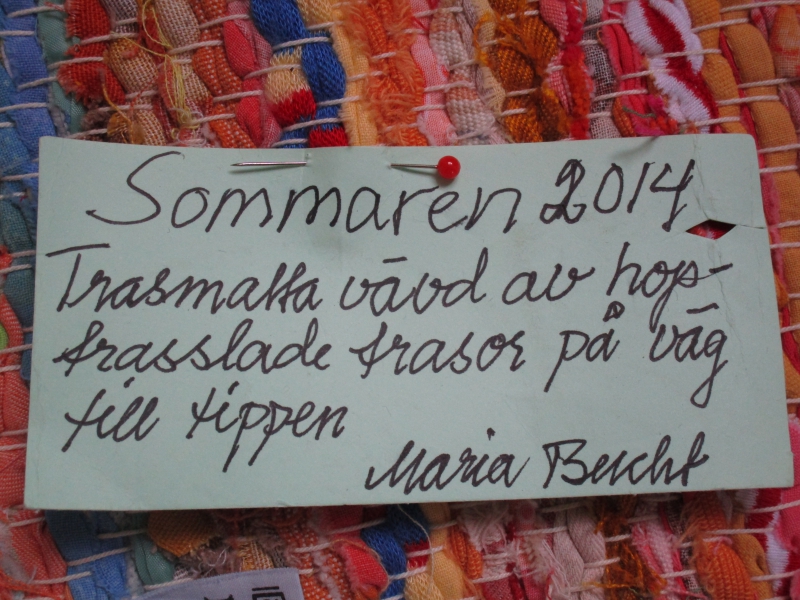 Sommaren 2014
Trasmatta vävd av hop-
trasslade trasor på väg
till tippen
Maria Bucht